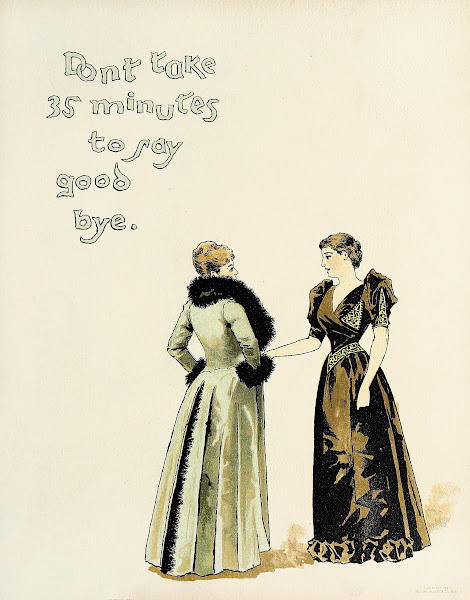 Dont take
35 minutes
to say
good
bye.